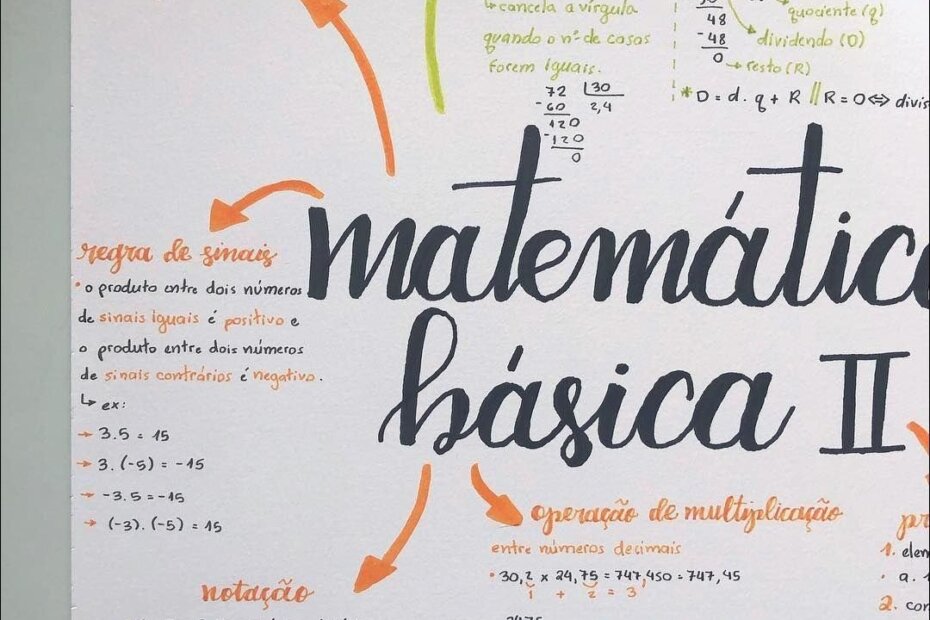 ↳ cancela a vírgula
quando o nº de casas
forem iguais.
72 30
-60 2,4
120
-120
0
48
-48
0
quociente (q)
dividendo (D)
→ resto (R)
* D = d. q + R // R = 0 ⇔ divis
matemática
básica II
regra de sinais
• o produto entre dois números
de sinais iguais é positivo e
o produto entre dois números
de sinais contrários é negativo.
↳ ex:
→ 3.5 = 15
→ 3. (-5) = -15
→ -3.5 = -15
→ (-3). (-5) = 15
operação de multiplicação
entre números decimais
• 30,2 x 24,75 = 747,450 = 747,45
1 + 2 = 3
notação
1. elem
• a. 1
2. con